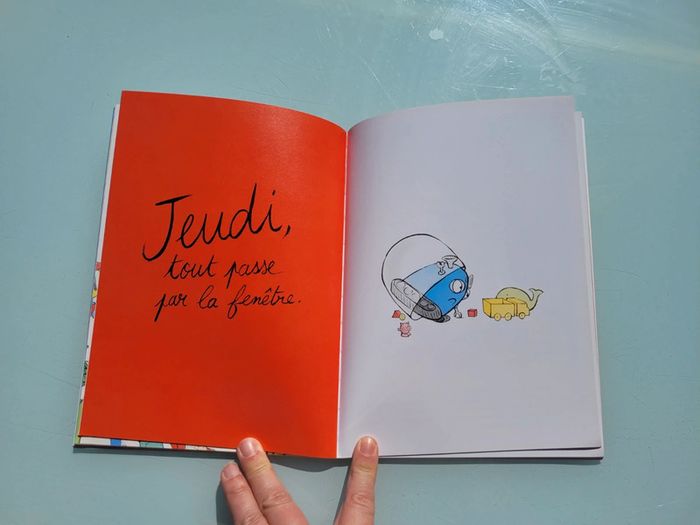 Jeudi,
tout passe
par la fenêtre.